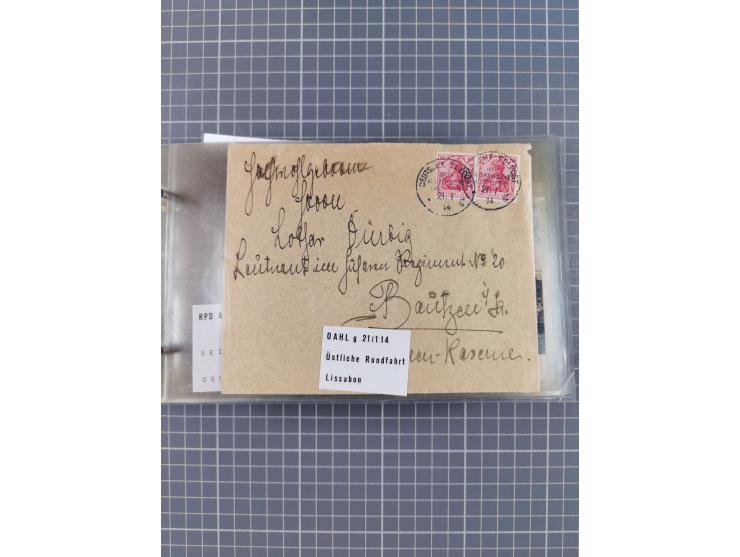 Hochwohlgeboren
Herrn
Lothar Dürbig
Leutnant im Husaren Regiment No 20
Bautzen i/Sa.
-Kaserne.
DEUTSCHE SEEPOST
21 1
14
OAHL g 21/1 14
Östliche Rundfahrt
Lissabon
RPD A